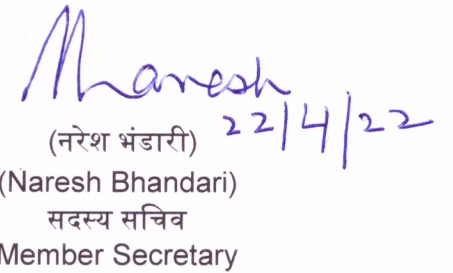 Naresh
22/4/22
(नरेश भंडारी)
(Naresh Bhandari)
सदस्य सचिव
Member Secretary